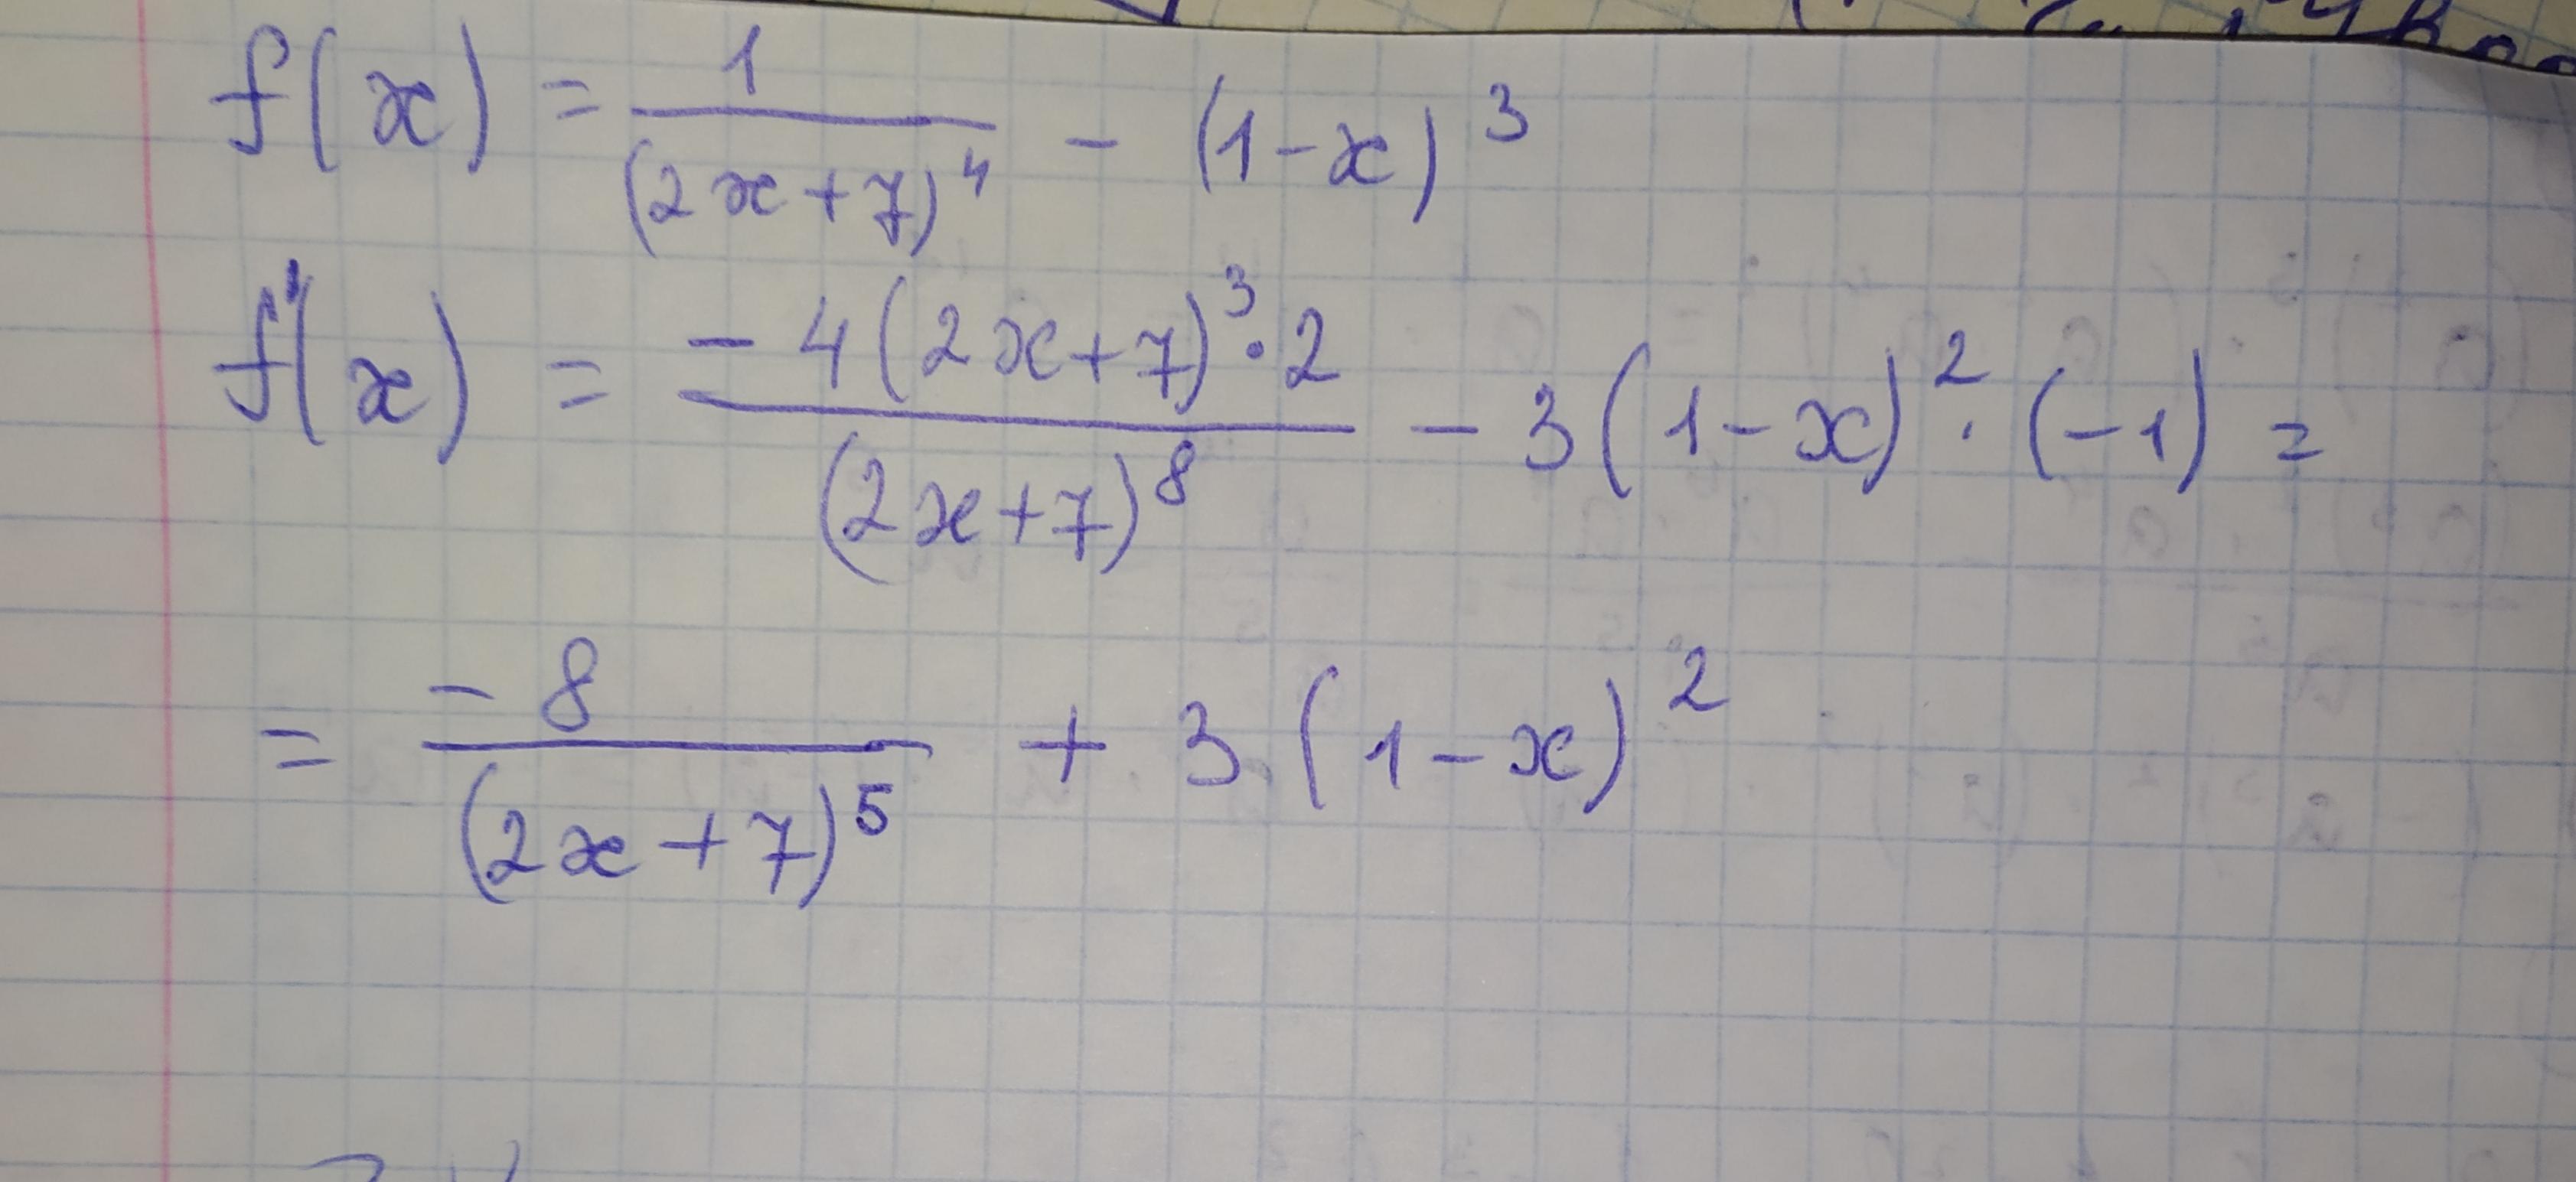 f(x) = 1/(2x+7)^4 - (1-x)^3
f'(x) = -4(2x+7)^3·2/(2x+7)^8 - 3(1-x)^2·(-1) =
= -8/(2x+7)^5 + 3(1-x)^2